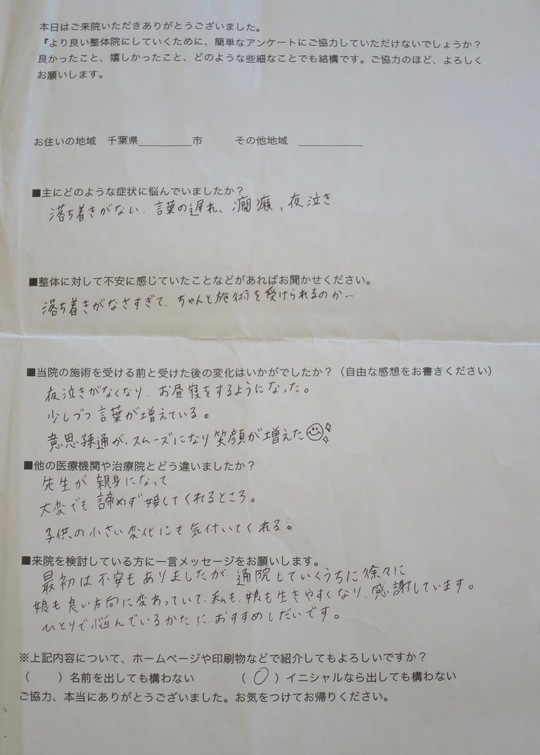 本日はご来院いただきありがとうございました。
『より良い整体院にしていくために、簡単なアンケートにご協力していただけないでしょうか？
良かったこと、嬉しかったこと、どのような些細なことでも結構です。ご協力のほど、よろしく
お願いします。
お住いの地域 千葉県________市 その他地域 ________
■主にどのような症状に悩んでいましたか？
落ち着きがない、言葉の遅れ、癇癪、夜泣き
■整体に対して不安に感じていたことなどがあればお聞かせください。
落ち着きがなさすぎて、ちゃんと施術を受けられるのか…
■当院の施術を受ける前と受けた後の変化はいかがでしたか？（自由な感想をお書きください）
夜泣きがなくなり、お昼寝をするようになった。
少しづつ言葉が増えている。
意思疎通が、スムーズになり笑顔が増えた
■他の医療機関や治療院とどう違いましたか？
先生が親身になって
大変でも諦めず接してくれるところ。
子供の小さい変化にも気付いてくれる。
■来院を検討している方に一言メッセージをお願いします。
最初は不安もありましたが、通院していくうちに徐々に
娘も良い方向に変わっていて、私も、娘も生きやすくなり、感謝しています。
ひとりで悩んでいるかたにおすすめしたいです。
※上記内容について、ホームページや印刷物などで紹介してもよろしいですか？
（　）名前を出しても構わない （○）イニシャルなら出しても構わない
ご協力、本当にありがとうございました。お気をつけてお帰りください。